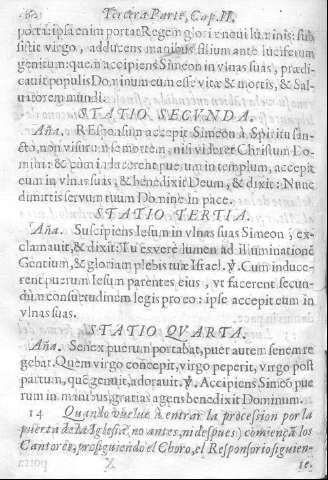 162 Tercera Parte, Cap. II.
porta: ipsa enim portat Regem gloriæ noui luminis: sub
sistit virgo, adducens manibus filium ante luciferum
genitum: quem accipiens Simeon in vlnas suas, prædi-
cauit populis Dominum eum esse vitæ & mortis, & Sal-
uatorem mundi.
STATIO SECVNDA.
Aña. REsponsum accepit Simeon à Spiritu san-
cto, non visurum se mortem, nisi videret Christum Do-
mini: & cùm inducerent puerum in templum, accepit
eum in vlnas suas, & benedixit Deum, & dixit: Nunc
dimittis seruum tuum Domine in pace.
STATIO TERTIA.
Aña. Suscipiens Iesum in vlnas suas Simeon, ex-
clamauit, & dixit: Tu es verè lumen ad illuminationē
Gentium, & gloriam plebis tuæ Israel. ℣. Cum induce-
rent puerum Iesum parentes eius, vt facerent secun-
dùm consuetudinem legis pro eo: ipse accepit eum in
vlnas suas.
STATIO QVARTA.
Aña. Senex puerum portabat, puer autem senem re
gebat. Quem virgo concepit, virgo peperit, virgo post
partum, quē genuit, adorauit. ℣. Accipiens Simeō pue
rum in manibus, gratias agens benedixit Dominum.
14 Quando buelue à entrar la procession por la
puerta de la Iglesia, no antes, ni despues, comiença los
Cantores, prosiguiendo el Choro, el Responsorio siguien-
X te.